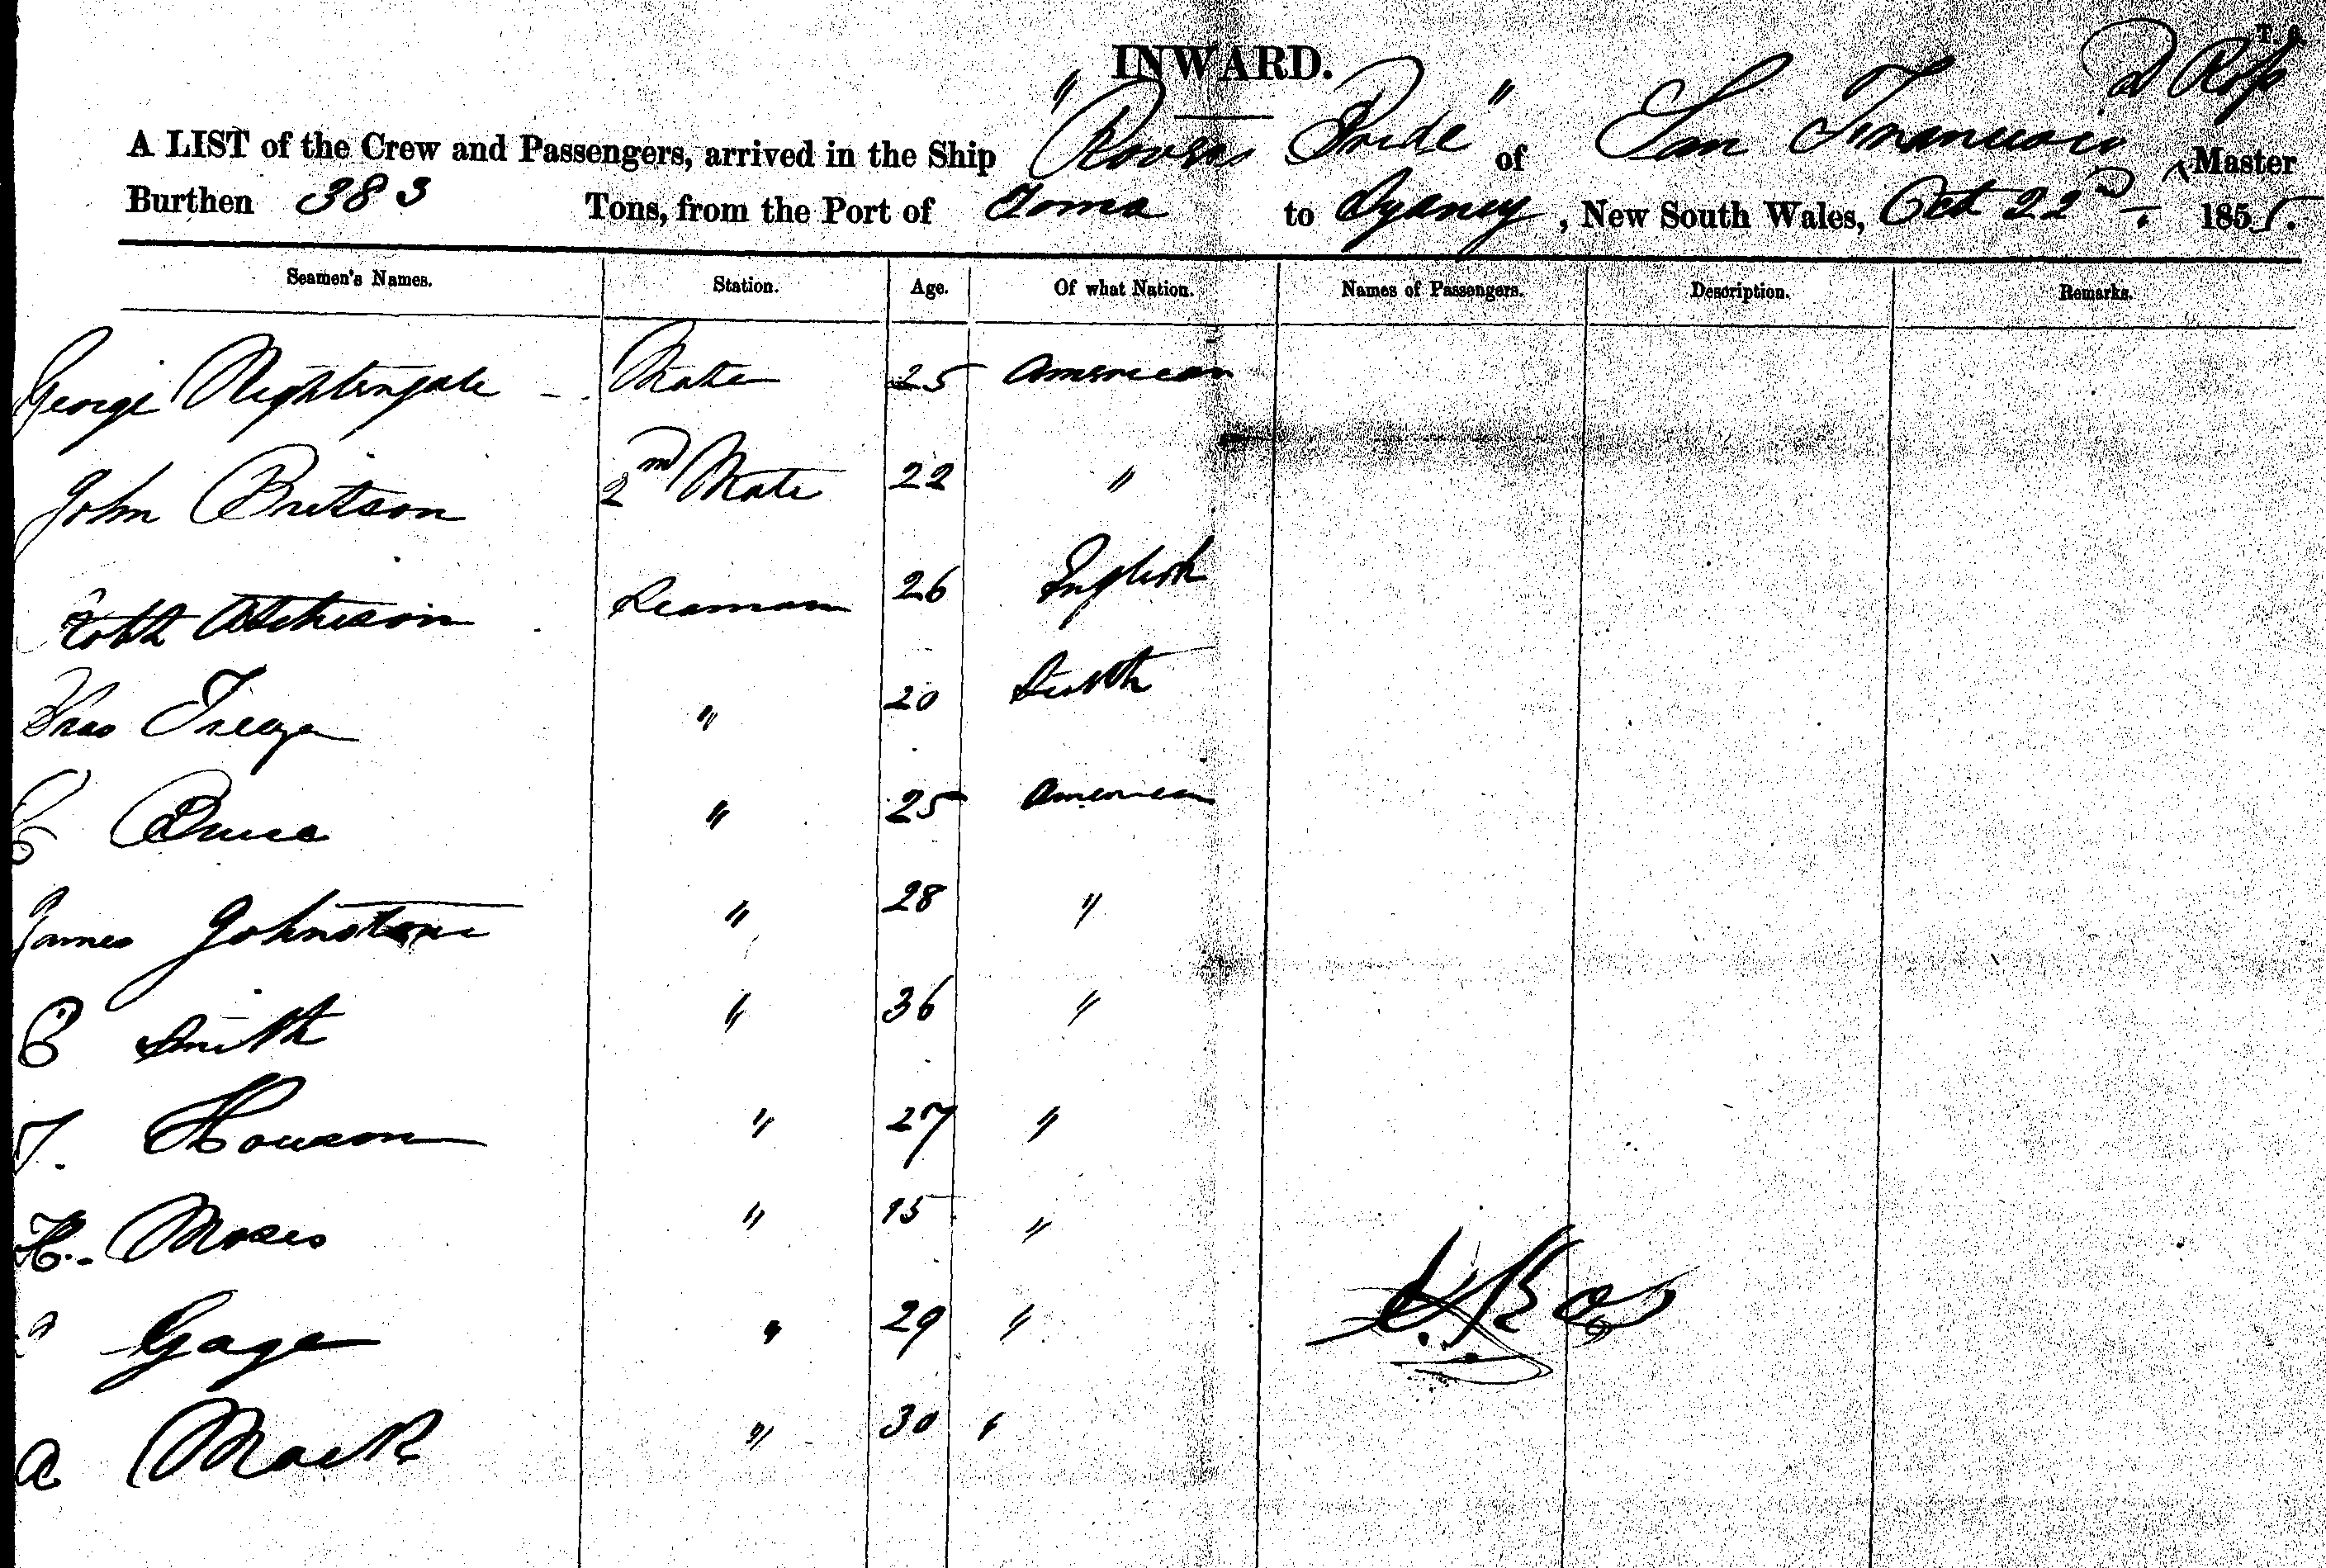 INWARD.
D Ross
A LIST of the Crew and Passengers, arrived in the Ship "Rovers Pride" of San Francisco Master
Burthen 383 Tons, from the Port of to Sydney, New South Wales, Oct 22nd 1855.
Seamen's Names. Station. Age. Of what Nation. Names of Passengers. Description. Remarks.
George Nightingale Mate 25 American
John Britson 2nd Mate 22 "
Robt Atchison Seaman 26 English
Thos " 20
C Bruce " 25 American
James Johnstone " 28 "
C Smith " 36 "
T. Howson " 27 "
H. Moses " 15 "
Gage " 29 "
D. Ross
A Mack " 30 "